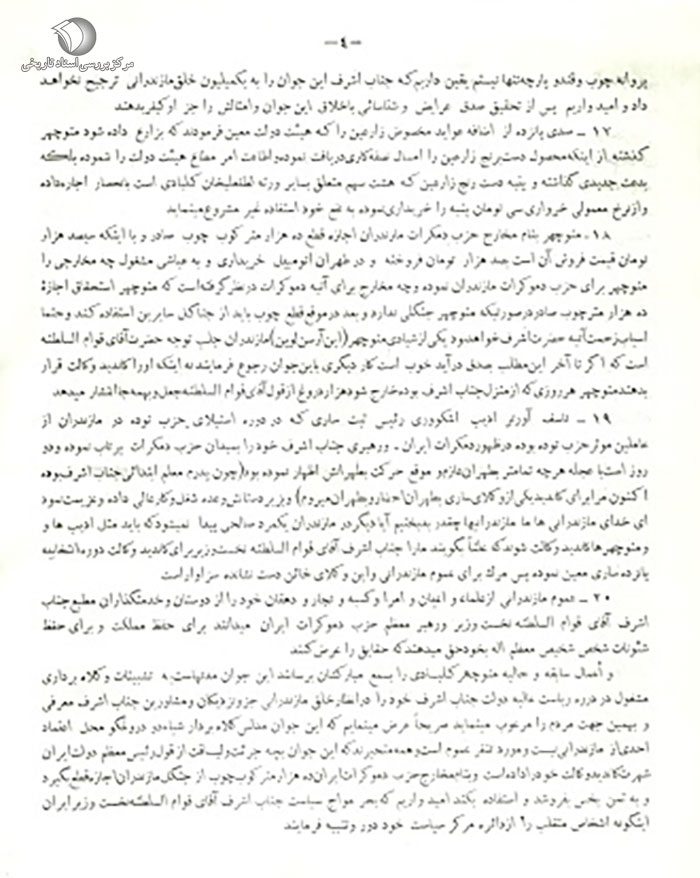 مرکز بررسی اسناد تاریخی
— ٤ —
پروانه چوب وقندو پارچه‌تنها نیستم یقین داریم که جناب اشرف این جوان را به یکمیلیون خلق مازندرانی ترجیح نخواهد
داد و امید واریم پس از تحقیق صدق عرایض و شناسائی باخلاق این جوان وامثالش را جز او کیفر بدهند
١٧ ــ صدی پانزده از اضافه عواید مخصوص زارعین را که هیئت دولت معین فرمودند که بزارع داده شود منوچهر
گذشته از اینکه محصول دسترنج زارعین را امسال نصفه کاری دریافت نموده واطاعت امر مطاع هیئت دولت را ننموده بلکه
بدعت جدیدی گذاشته و بقیه دست رنج زارعین که هشت سهم متعلق بسایر ورثه لطفعلیخان کلبادی است بانحصار اجاره داده
و از نرخ معمولی خرواری سی تومان بنبه را خریداری نموده به نفع خود استفاده غیر مشروع مینماید
١٨ ــ منوچهر بنام مخارج حزب دمکرات مازندران اجازه قطع ده هزار متر کوب چوب صادر و با اینکه سیصد هزار
تومان قیمت فروش آن است بصد هزار تومان فروخته و در طهران اتومبیل خریداری و به عیاشی مشغول چه مخارجی را
منوچهر برای حزب دموکرات مازندران نموده وچه مخارج برای آتیه دموکرات در نظر گرفته است که منوچهر استحقاق اجازۀ
ده هزار متر چوب صادر درصورتیکه منوچهر جنگلی ندارد و بعد در موقع قطع چوب باید از جنگل سایرین استفاده کند وحتما
اسباب زحمت آتیه حضرت اشرف خواهد بود یکی از شیادی منوچهر (این آرسن لوپن) مازندران جلب توجه حضرت آقای قوام السلطنه
است که اگر تا آخر این مطلب بصدق درآید خوب است کار دیگری باین جوان رجوع فرمایند نه اینکه اورا کاندید وکالت قرار
بدهند منوچهر هر روزی که از منزل جناب اشرف بوده خارج شود هزار دروغ از قول آقای قوام السلطنه جعل و بهمه جا انتشار میدهد
١٩ ــ تاسف آورتر ادیب اشکوری رئیس ثبت ساری که در دوره استیلای حزب توده در مازندران از
عاملین موثر حزب توده بوده در ظهور دمکرات ایران ــ و رهبری جناب اشرف خود را بمیدان حزب دمکرات پرتاب نموده و دو
روز است با عجله هرچه تمامتر بطهران عازم و موقع حرکت بطهرانش اظهار نموده بود (چون پدرم معلم ابتدائی جناب اشرف بوده
اکنون مرا برای کاندید یکی از وکلای ساری بطهران احضار و بطهران میروم) و بزیر دستانش وعده شغل و کار عالی داده و عزیمت نمود
ای خدای مازندرانی ها ما مازندرانیها چقدر بدبختیم آیا دیگر در مازندران یکمرد صالحی پیدا نمیشود که باید مثل ادیب ها و
و منوچهر ها کاندید وکالت شوند که علناً بگویند مارا جناب اشرف آقای قوام السلطنه نخست وزیر برای کاندید وکالت دوره انتخابیه
پانزده ساری معین نموده پس مرگ برای عموم مازندرانی واین وکلای خائن دست نشانده سزاوار است
٢٠ ــ عموم مازندرانی از علماء و اعیان و امرا و کسبه و تجار و دهقان خود را از دوستان و خدمتگذاران مطیع جناب
اشرف آقای قوام السلطنه نخست وزیر ورهبر معظم حزب دموکرات ایران میدانند برای حفظ مملکت و برای حفظ
شئونات شخص شخیص معظم اله بخود حق میدهند که حقایق را عرض کنند
و اعمال سابقه و حالیه منوچهر کلبادی را بسمع مبارکتان برسانند این جوان مدتهاست به تشبثات وکلاه برداری
مشغول در دوره ریاست عالیه دولت جناب اشرف خود را در انظار خلق مازندرانی جزو نزدیکان ومشاورین جناب اشرف معرفی
و بهمین جهت مردم را مرعوب مینماید صریحاً عرض مینمایم که این جوان مفلس کلاه بردار شیاد و دروغگو محل اعتماد
احدی از مازندرانی نیست و مورد تنفر عموم است و همه متحیرند که این جوان بچه جرئت ولیاقت از قول رئیس معظم دولت ایران
شهرت کاندید وکالت خود را داده است و بنام مخارج حزب دموکرات ایران ده هزار متر کوب چوب از جنگل مازندران اجازه قطع بگیرد
و به ثمن بخس بفروشد و استفاده بکند امید واریم که بحر مواج سیاست جناب اشرف آقای قوام السلطنه نخست وزیر ایران
اینگونه اشخاص متقلب را از دائره مرکز سیاست خود دور وتنبیه فرمایند